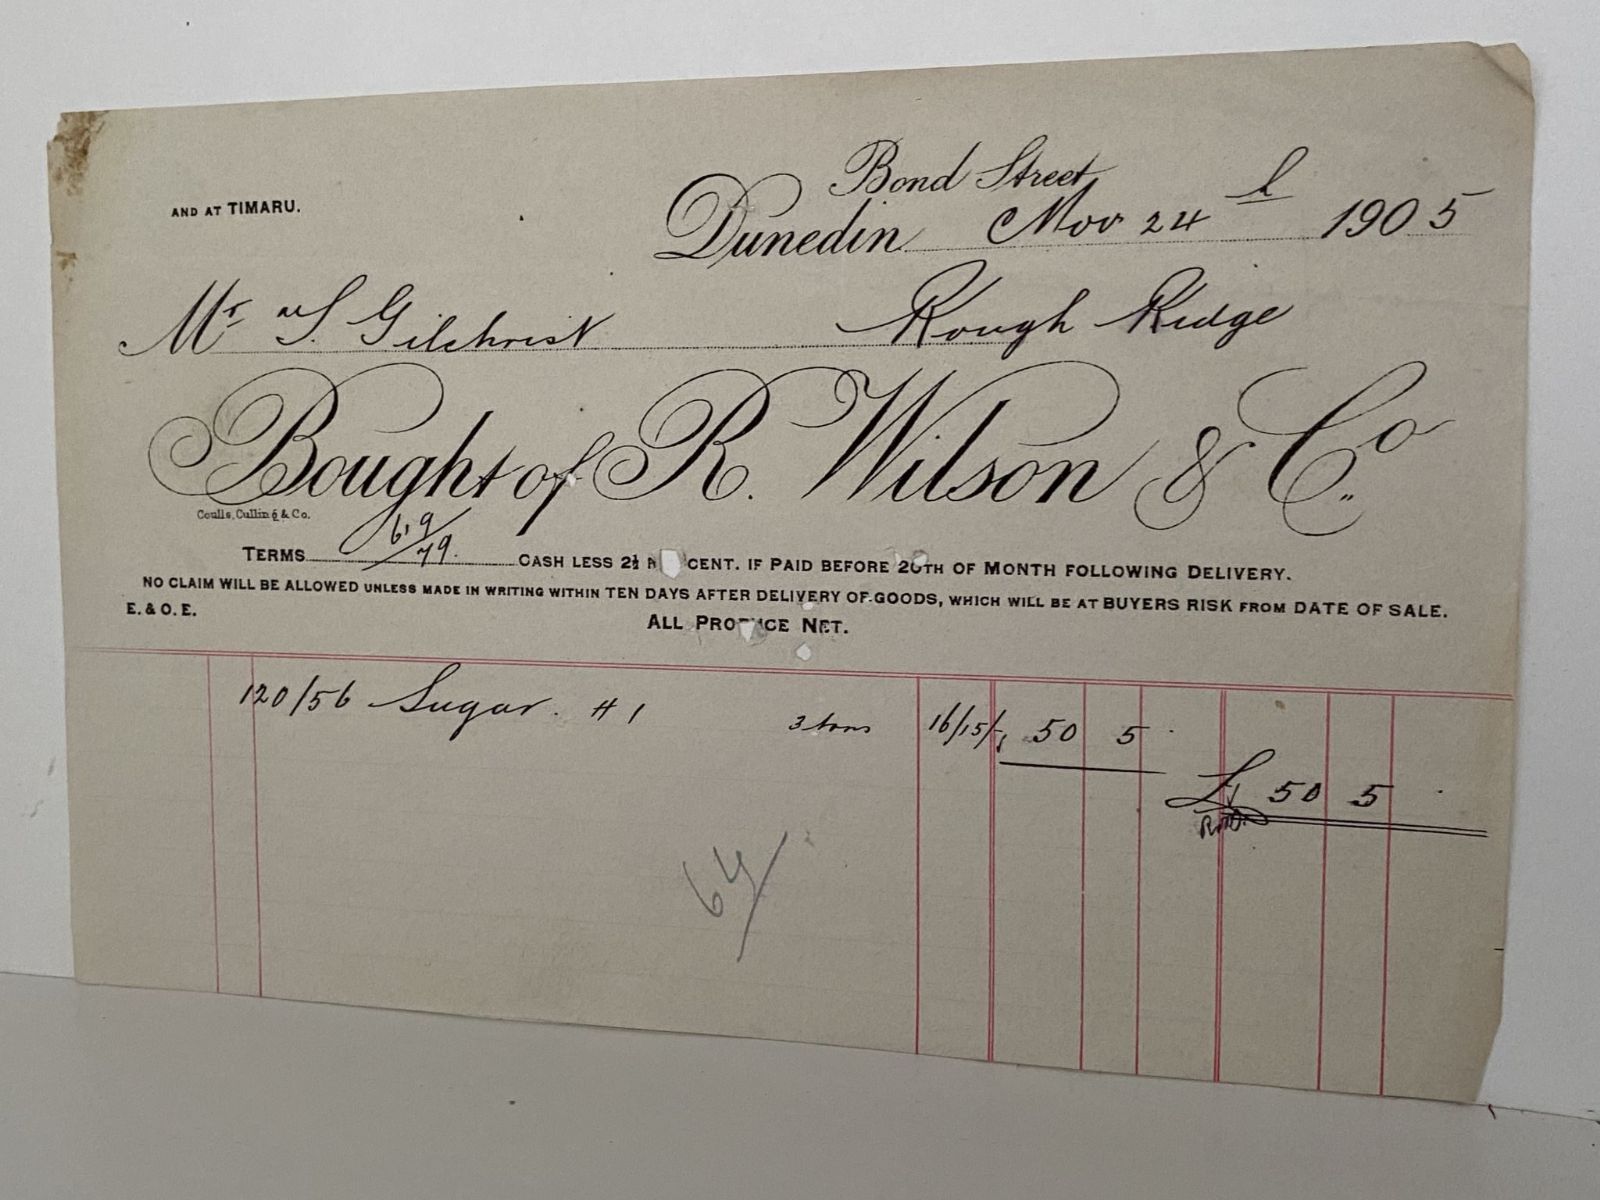 AND AT TIMARU.
Bond Street
Dunedin Nov 24th 1905
Mr S. Gilchrist Rough Ridge
Bought of R. Wilson & Co.
Coulls, Culling & Co.
TERMS CASH LESS 2½ CENT. IF PAID BEFORE 20TH OF MONTH FOLLOWING DELIVERY.
NO CLAIM WILL BE ALLOWED UNLESS MADE IN WRITING WITHIN TEN DAYS AFTER DELIVERY OF GOODS, WHICH WILL BE AT BUYERS RISK FROM DATE OF SALE.
E. & O. E.
ALL PRODUCE NET.
120/56 Sugar. #1 3 tons 16/15/- 50 5
£ 50 5